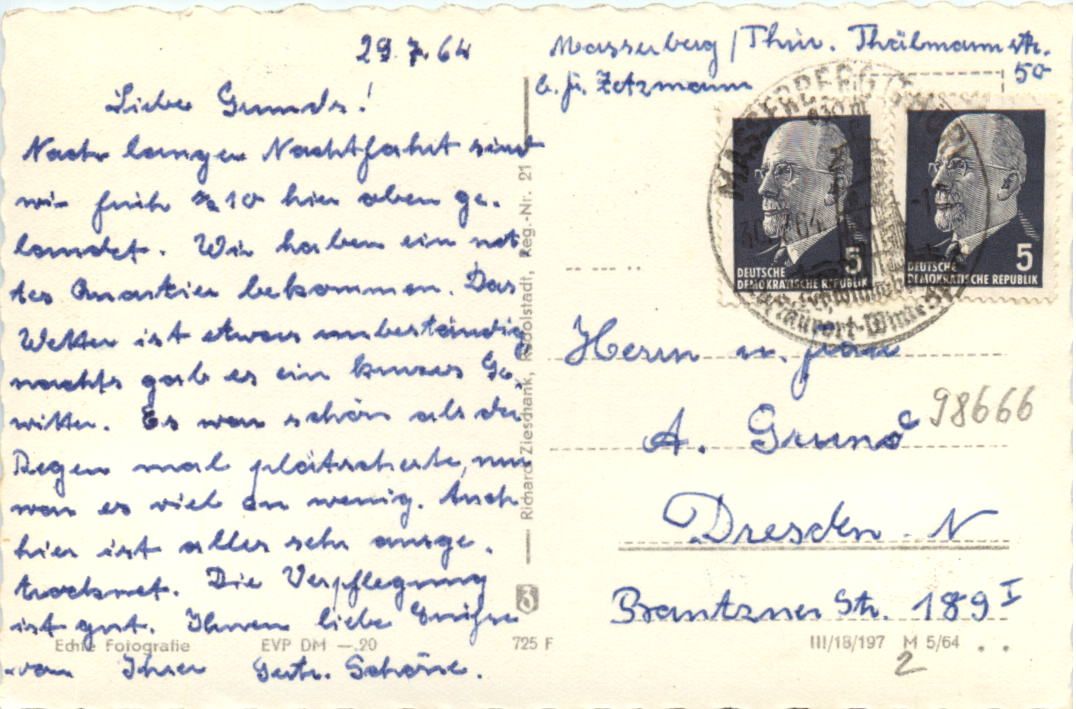 29.7.64
Liebe Grunds!
Nach langer Nachtfahrt sind
wir früh 10 hier oben ge-
landet. Wir haben ein net
tes Quartier bekommen. Das
Wetter ist etwas unbeständig
nachts gab es ein kurzes Ge-
witter. Es war schön als der
Regen mal plätscherte, nur
war es viel zu wenig. Auch
hier ist alles sehr ausge-
trocknet. Die Verpflegung
ist gut. Ihnen liebe Grüße
von Ihrer Gertr. Schöne.
Echte Fotografie EVP DM —.20 725 F
Richard Zieschank, Rudolstadt, Reg.-Nr. 21
Masserberg / Thür. Thälmannstr.
50
b. Fr. Zetzmann
MASSERBERG (THÜR)
830 m
30.7.64
DEUTSCHE
DEMOKRATISCHE REPUBLIK
5
DEUTSCHE
DEMOKRATISCHE REPUBLIK
5
Herrn u. Frau
98666
A. Grund
Dresden N
Bautzner Str. 189 I
III/18/197 M 5/64
2